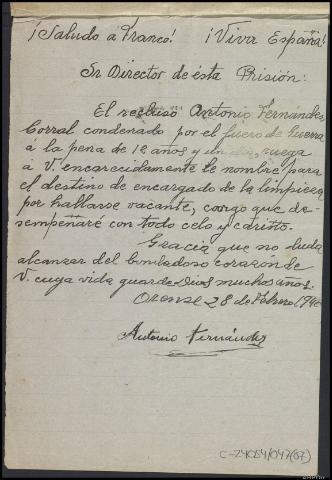 ¡Saludo á Franco! ¡Viva España!
Sr Director de ésta Prisión:
El recluso Antonio Fernández
Corral condenado por el fuero de Guerra
á la pena de 12 años y un día, ruega
á V. encarecidamente le nombre para
el destino de encargado de la limpieza
por hallarse vacante, cargo que de-
sempeñaré con todo celo y cariño.
Gracia que no duda
alcanzar del bondadoso corazón de
V. cuya vida guarde Dios muchos años.
Orense 28 de Febrero 1940
Antonio Fernández